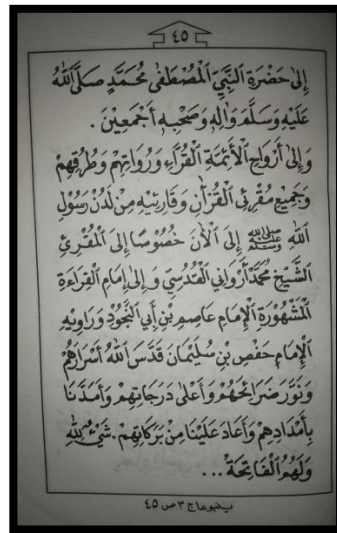 ٤٥
إِلىٰ حَضْرَةِ النَّبِيِّ الْمُصْطَفٰى مُحَمَّدٍ صَلَّى اللهُ
عَلَيْهِ وَسَلَّمَ وَاٰلِهِ وَصَحْبِهِ أَجْمَعِيْنَ .
وَإِلىٰ أَرْوَاحِ الْأَئِمَّةِ الْقُرَّاءِ وَرُوَاتِهِمْ وَطُرُقِهِمْ
وَجَمِيْعِ مُقْرِئِي الْقُرْآنِ وَقَارِئِيْهِ مِنْ لَدُنْ رَسُوْلِ
اللهِ ﷺ إِلَى الْأٰنَ خُصُوْصًا إِلَى الْمُقْرِئِ
الشَّيْخِ مُحَمَّدْ أَرْوَانِي الْقُدْسِيّ وَإِلىٰ إِمَامِ الْقِرَاءَةِ
الْمَشْهُوْرَةِ الْإِمَامِ عَاصِمِ بْنِ أَبِي النَّجُوْدِ وَرَاوِيْهِ
الْإِمَامِ حَفْصِ بْنِ سُلَيْمَانَ قَدَّسَ اللهُ أَسْرَارَهُمْ
وَنَوَّرَ ضَرَائِحَهُمْ وَأَعْلىٰ دَرَجَاتِهِمْ وَأَمَدَّنَا
بِأَمْدَادِهِمْ وَأَعَادَ عَلَيْنَا مِنْ بَرَكَاتِهِمْ . شَيْءٌ لِلّٰهِ
وَلَهُمُ الْفَاتِحَةُ ...
٣ ص ٤٥